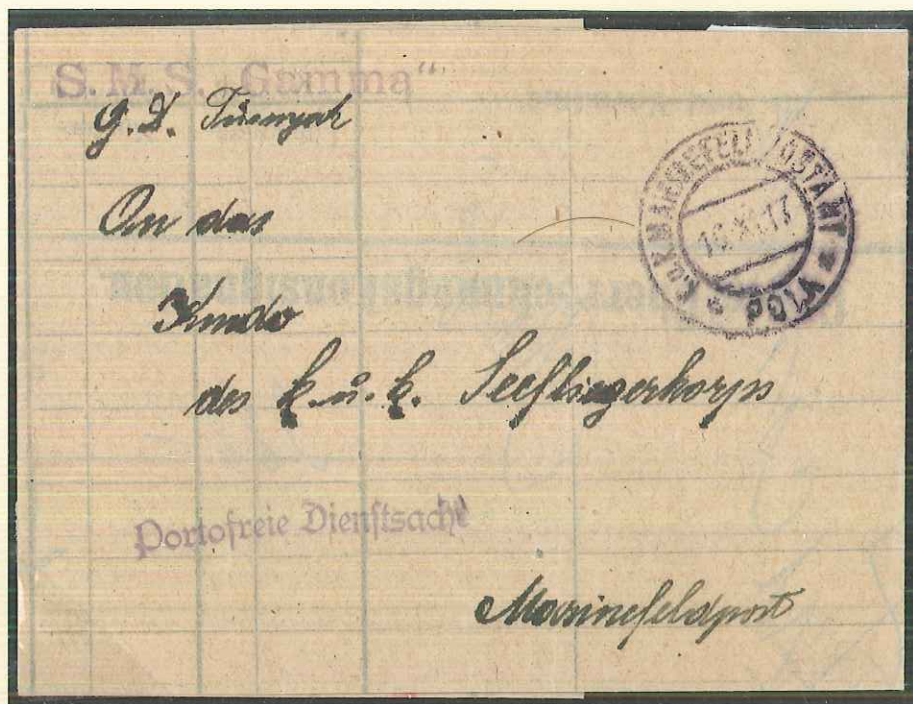 S.M.S. „Gamma“
G. D.
K.u.K. MARINEFELDPOSTAMT * POLA *
10.XI.17
An das
Kmdo
des k. u. k. Seefliegerkorps
Portofreie Dienstsache
Marinefeldpost